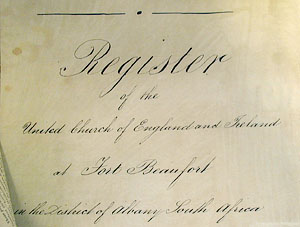 Register
of the
United Church of England and Ireland
at Fort Beaufort
in the District of Albany South Africa